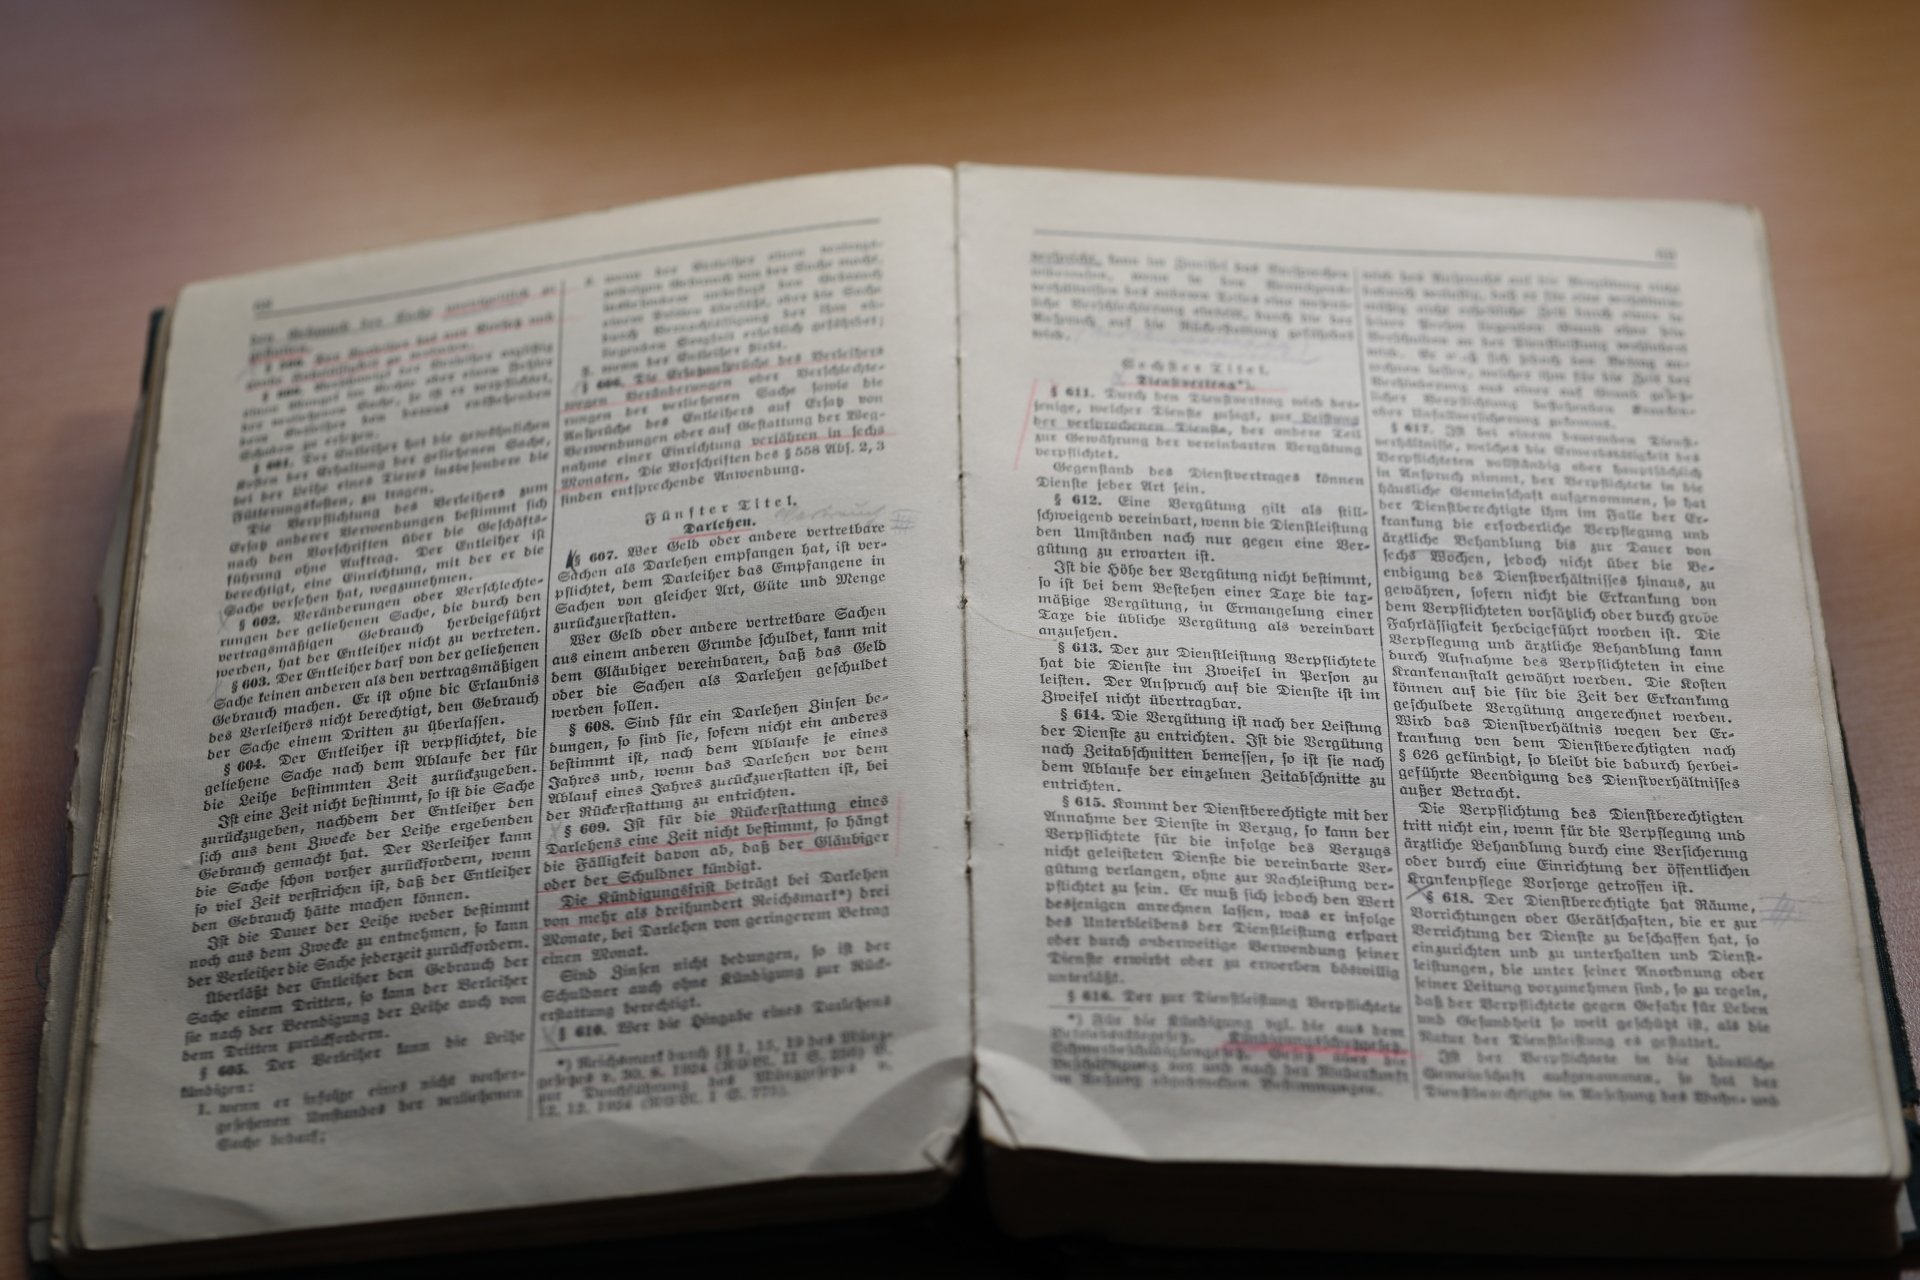 den Gebrauch der Sache unentgeltlich zu
gestatten.
§ 601. Der Entleiher hat die gewöhnlichen
Kosten der Erhaltung der geliehenen Sache,
bei der Leihe eines Tieres insbesondere die
Fütterungskosten, zu tragen.
Die Verpflichtung des Verleihers zum
Ersatz anderer Verwendungen bestimmt sich
nach den Vorschriften über die Geschäfts-
führung ohne Auftrag. Der Entleiher ist
berechtigt, eine Einrichtung, mit der er die
Sache versehen hat, wegzunehmen.
§ 602. Veränderungen oder Verschlechte-
rungen der geliehenen Sache, die durch den
vertragsmäßigen Gebrauch herbeigeführt
werden, hat der Entleiher nicht zu vertreten.
§ 603. Der Entleiher darf von der geliehenen
Sache keinen anderen als den vertragsmäßigen
Gebrauch machen. Er ist ohne die Erlaubnis
des Verleihers nicht berechtigt, den Gebrauch
der Sache einem Dritten zu überlassen.
§ 604. Der Entleiher ist verpflichtet, die
geliehene Sache nach dem Ablaufe der für
die Leihe bestimmten Zeit zurückzugeben.
Ist eine Zeit nicht bestimmt, so ist die Sache
zurückzugeben, nachdem der Entleiher den
sich aus dem Zwecke der Leihe ergebenden
Gebrauch gemacht hat. Der Verleiher kann
die Sache schon vorher zurückfordern, wenn
so viel Zeit verstrichen ist, daß der Entleiher
den Gebrauch hätte machen können.
Ist die Dauer der Leihe weder bestimmt
noch aus dem Zwecke zu entnehmen, so kann
der Verleiher die Sache jederzeit zurückfordern.
Überläßt der Entleiher den Gebrauch der
Sache einem Dritten, so kann der Verleiher
sie nach der Beendigung der Leihe auch von
dem Dritten zurückfordern.
§ 605. Der Verleiher kann die Leihe
kündigen:
1. wenn er infolge eines nicht vorher-
gesehenen Umstandes der verliehenen
Sache bedarf;
2. wenn der Entleiher einen vertrags-
widrigen Gebrauch von der Sache macht,
insbesondere unbefugt den Gebrauch
einem Dritten überläßt, oder die Sache
durch Vernachlässigung der ihm ob-
liegenden Sorgfalt erheblich gefährdet;
3. wenn der Entleiher stirbt.
§ 606. Die Ersatzansprüche des Verleihers
wegen Veränderungen oder Verschlechte-
rungen der verliehenen Sache sowie die
Ansprüche des Entleihers auf Ersatz von
Verwendungen oder auf Gestattung der Weg-
nahme einer Einrichtung verjähren in sechs
Monaten. Die Vorschriften des § 558 Abs. 2, 3
finden entsprechende Anwendung.
Fünfter Titel.
Darlehen.
§ 607. Wer Geld oder andere vertretbare
Sachen als Darlehen empfangen hat, ist ver-
pflichtet, dem Darleiher das Empfangene in
Sachen von gleicher Art, Güte und Menge
zurückzuerstatten.
Wer Geld oder andere vertretbare Sachen
aus einem anderen Grunde schuldet, kann mit
dem Gläubiger vereinbaren, daß das Geld
oder die Sachen als Darlehen geschuldet
werden sollen.
§ 608. Sind für ein Darlehen Zinsen be-
dungen, so sind sie, sofern nicht ein anderes
bestimmt ist, nach dem Ablaufe je eines
Jahres und, wenn das Darlehen vor dem
Ablauf eines Jahres zurückzuerstatten ist, bei
der Rückerstattung zu entrichten.
§ 609. Ist für die Rückerstattung eines
Darlehens eine Zeit nicht bestimmt, so hängt
die Fälligkeit davon ab, daß der Gläubiger
oder der Schuldner kündigt.
Die Kündigungsfrist beträgt bei Darlehen
von mehr als dreihundert Reichsmark*) drei
Monate, bei Darlehen von geringerem Betrag
einen Monat.
Sind Zinsen nicht bedungen, so ist der
Schuldner auch ohne Kündigung zur Rück-
erstattung berechtigt.
§ 610. Wer die Hingabe eines Darlehens
*) Reichsmark durch §§ 1, 15, 19 des Münz-
gesetzes v. 30. 8. 1924
zur Durchführung des Münzgesetzes v.
12. 12. 1924
verspricht, kann im Zweifel das Versprechen
widerrufen, wenn in den Vermögens-
verhältnissen des anderen Teiles eine wesent-
liche Verschlechterung eintritt, durch die der
Anspruch auf die Rückerstattung gefährdet
wird.
Sechster Titel.
Dienstvertrag*).
§ 611. Durch den Dienstvertrag wird der-
jenige, welcher Dienste zusagt, zur Leistung
der versprochenen Dienste, der andere Teil
zur Gewährung der vereinbarten Vergütung
verpflichtet.
Gegenstand des Dienstvertrages können
Dienste jeder Art sein.
§ 612. Eine Vergütung gilt als still-
schweigend vereinbart, wenn die Dienstleistung
den Umständen nach nur gegen eine Ver-
gütung zu erwarten ist.
Ist die Höhe der Vergütung nicht bestimmt,
so ist bei dem Bestehen einer Taxe die tax-
mäßige Vergütung, in Ermangelung einer
Taxe die übliche Vergütung als vereinbart
anzusehen.
§ 613. Der zur Dienstleistung Verpflichtete
hat die Dienste im Zweifel in Person zu
leisten. Der Anspruch auf die Dienste ist im
Zweifel nicht übertragbar.
§ 614. Die Vergütung ist nach der Leistung
der Dienste zu entrichten. Ist die Vergütung
nach Zeitabschnitten bemessen, so ist sie nach
dem Ablaufe der einzelnen Zeitabschnitte zu
entrichten.
§ 615. Kommt der Dienstberechtigte mit der
Annahme der Dienste in Verzug, so kann der
Verpflichtete für die infolge des Verzugs
nicht geleisteten Dienste die vereinbarte Ver-
gütung verlangen, ohne zur Nachleistung ver-
pflichtet zu sein. Er muß sich jedoch den Wert
desjenigen anrechnen lassen, was er infolge
des Unterbleibens der Dienstleistung erspart
oder durch anderweitige Verwendung seiner
Dienste erwirbt oder zu erwerben böswillig
unterläßt.
§ 616. Der zur Dienstleistung Verpflichtete
*) Für die Kündigung vgl. die aus dem
Kündigungsschutzgesetz,
wird des Anspruchs auf die Vergütung nicht
dadurch verlustig, daß er für eine verhältnis-
mäßig nicht erhebliche Zeit durch einen in
seiner Person liegenden Grund ohne sein
Verschulden an der Dienstleistung verhindert
wird. Er muß sich jedoch den Betrag an-
rechnen lassen, welcher ihm für die Zeit der
Verhinderung aus einer auf Grund gesetz-
licher Verpflichtung bestehenden Kranken-
oder Unfallversicherung zukommt.
§ 617. Ist bei einem dauernden Dienst-
verhältnisse, welches die Erwerbstätigkeit des
Verpflichteten vollständig oder hauptsächlich
in Anspruch nimmt, der Verpflichtete in die
häusliche Gemeinschaft aufgenommen, so hat
der Dienstberechtigte ihm im Falle der Er-
krankung die erforderliche Verpflegung und
ärztliche Behandlung bis zur Dauer von
sechs Wochen, jedoch nicht über die Be-
endigung des Dienstverhältnisses hinaus, zu
gewähren, sofern nicht die Erkrankung von
dem Verpflichteten vorsätzlich oder durch grobe
Fahrlässigkeit herbeigeführt worden ist. Die
Verpflegung und ärztliche Behandlung kann
durch Aufnahme des Verpflichteten in eine
Krankenanstalt gewährt werden. Die Kosten
können auf die für die Zeit der Erkrankung
geschuldete Vergütung angerechnet werden.
Wird das Dienstverhältnis wegen der Er-
krankung von dem Dienstberechtigten nach
§ 626 gekündigt, so bleibt die dadurch herbei-
geführte Beendigung des Dienstverhältnisses
außer Betracht.
Die Verpflichtung des Dienstberechtigten
tritt nicht ein, wenn für die Verpflegung und
ärztliche Behandlung durch eine Versicherung
oder durch eine Einrichtung der öffentlichen
Krankenpflege Vorsorge getroffen ist.
§ 618. Der Dienstberechtigte hat Räume,
Vorrichtungen oder Gerätschaften, die er zur
Verrichtung der Dienste zu beschaffen hat, so
einzurichten und zu unterhalten und Dienst-
leistungen, die unter seiner Anordnung oder
seiner Leitung vorzunehmen sind, so zu regeln,
daß der Verpflichtete gegen Gefahr für Leben
und Gesundheit so weit geschützt ist, als die
Natur der Dienstleistung es gestattet.
Ist der Verpflichtete in die häusliche
Gemeinschaft aufgenommen, so hat der
Dienstberechtigte in Ansehung des Wohn- und